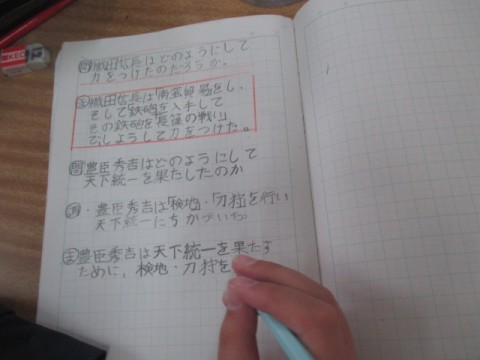 問 織田信長はどのようにして
力をつけたのだろうか。
ま 織田信長は「南蛮貿易をし、
そして「鉄砲」を入手して
その鉄砲を「長篠の戦い」
で、しようして力をつけた。
問 豊臣秀吉はどのようにして
天下統一を果たしたのか
・豊臣秀吉は「検地」・「刀狩」を行い
天下統一にちかづいた
ま 豊臣秀吉は天下統一を果たす
ために、検地・刀狩を